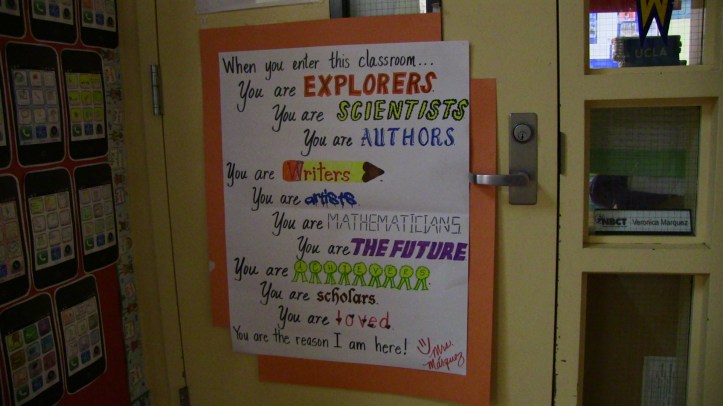 When you enter this classroom...
You are EXPLORERS.
You are SCIENTISTS
You are AUTHORS
You are Writers.
You are artists.
You are MATHEMATICIANS
You are THE FUTURE
You are ACHIEVERS.
You are scholars.
You are loved.
You are the reason I am here!
Mrs. Márquez
W
UCLA
NBCT Veronica Marquez